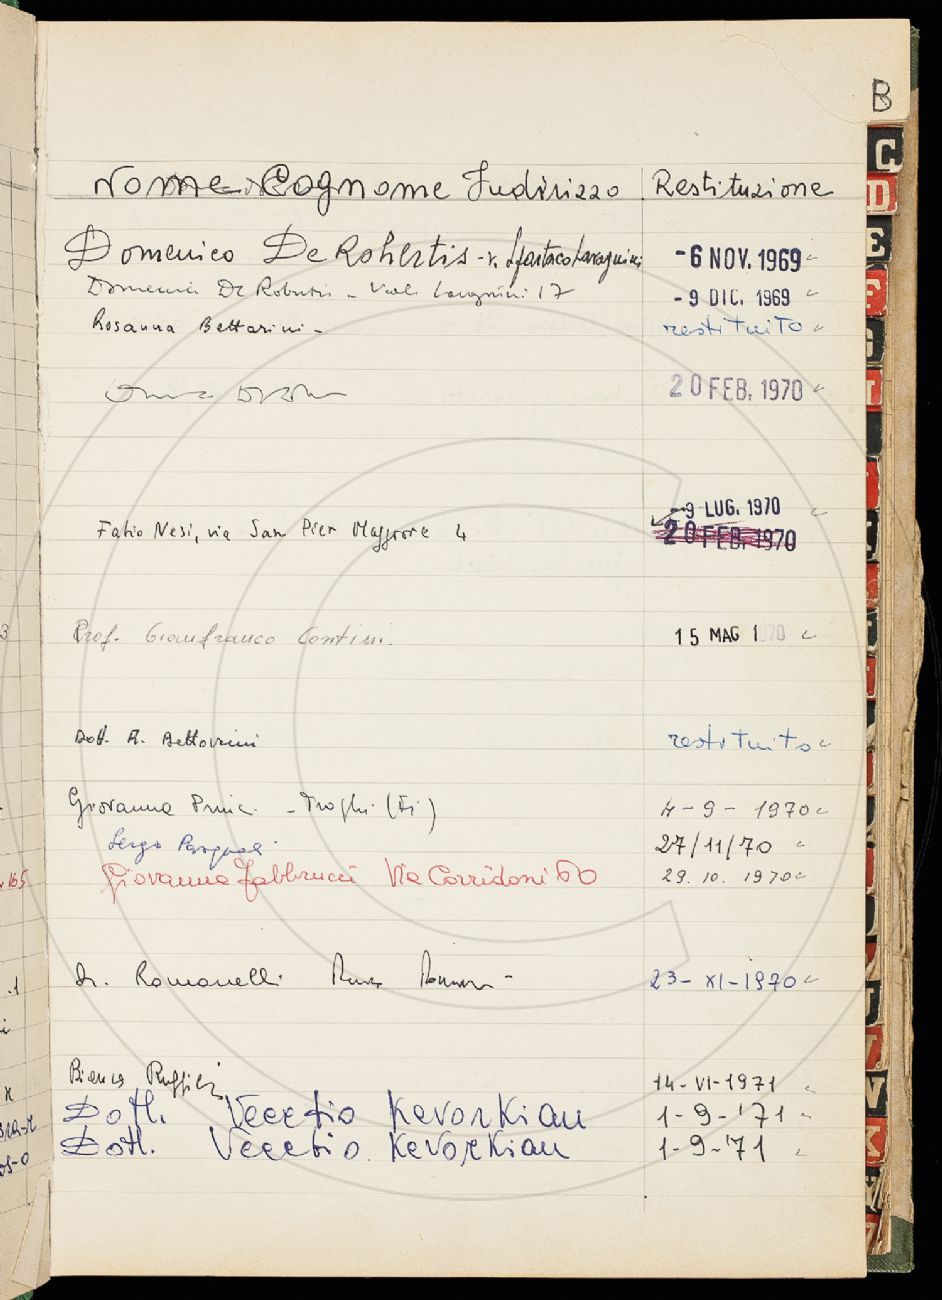 B
Nome Cognome Indirizzo Restituzione
Domenico De Robertis - v. Spartaco Lavagnini - 6 NOV. 1969
Domenico De Robertis - Viale Lavagnini 17 - 9 DIC. 1969
Rosanna Bettarini - restituito
20 FEB. 1970
- 9 LUG. 1970
Fabio Nesi, via San Pier Maggiore 4 20 FEB. 1970
Prof. Gianfranco Contini. 15 MAG 1970
Dott. R. Bettarini restituito
Giovanna - Troghi (Fi) 4 - 9 - 1970
Sergio 27/11/70
Giovanna Fabbrucci Via Corridoni 60 29. 10. 1970
Dr. Romanelli 23 - XI - 1970
Bianca 14 - VI - 1971
Dott. Kevorkian 1 - 9 - '71
Dott. Kevorkian 1 - 9 - '71
C
D
E
F